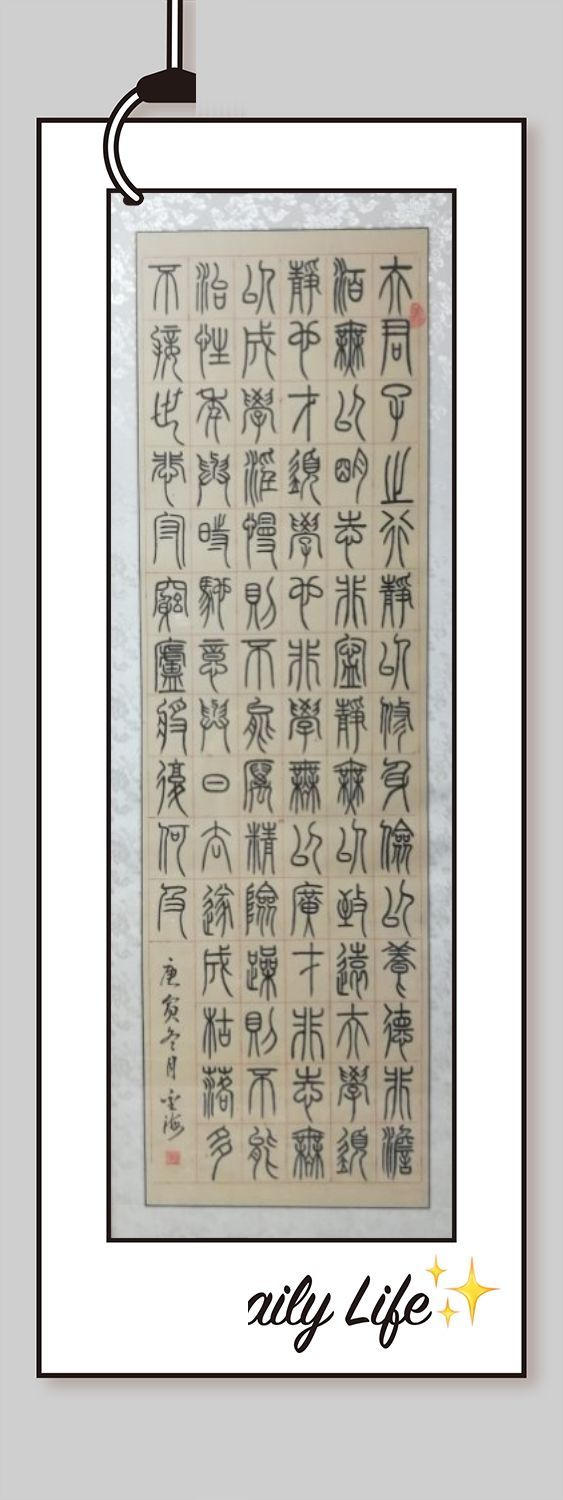 夫君子之行靜以修身儉以養德非澹
泊無以明志非寧靜無以致遠夫學須
靜也才須學也非學無以廣才非志無
以成學淫慢則不能厲精險躁則不能
治性年與時馳意與日去遂成枯落多
不接世悲守窮廬將復何及
庚寅冬月雲海
aily Life